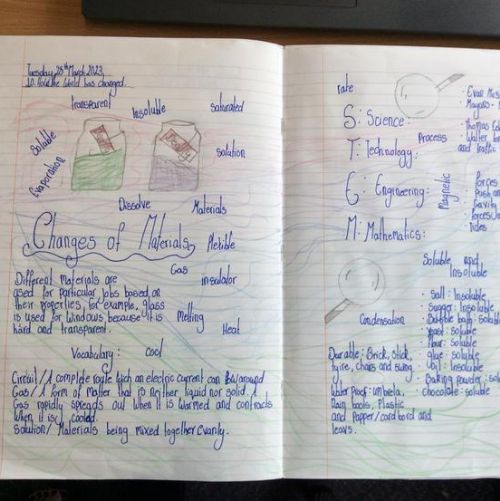 Tuesday 28th March 2023.
LO: How the World has changed.
transparent
Insoluble
saturated
Soluble
solution
Evaporation
Dissolve
Materials
Changes of Materials
Flexible
Gas
insulator
Different materials are
used for particular jobs based on
their properties, for example, glass
is used for windows because it is
hard and transparent.
Melting
Heat
Vocabulary:
cool
Circuit/A complete route wich an electric current can flow around
Gas/A form of matter that is neither liquid nor solid. A
Gas rapidly spreads out when it is warmed and contracts
when it is cooled.
Solution/ Materials being mixed together Evanly.
rate
S: Science:
Process
T: Technology:
and traffic
E: Engineering:
Magnetic
Forces
Push and
Gravity
M: Mathematics:
Soluble and
Insoluble
• Salt: Insoluble
• Sugger: Insoluble
• Bubble bath: soluble
• yeast: soluble
• flour: soluble
• glue: soluble
• oil: Insoluble
• Baking powder:
• chocolate: soluble
Condensation
Durable: Brick, Stick,
tyire, chairs and swing.
Water proof: umbrela,
Rain boots, Plastic
and Papper/cardbord and
leavs.